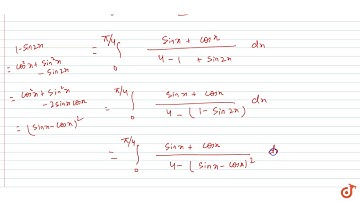 1-sin2x
= cos²x + sin²x
- sin2x
= cos²x + sin²x
- 2sinx cosx
= (sinx - cosx)²
= ∫₀^{π/4} (sinx + cosx)/(4 - 1 + sin2x) dx
= ∫₀^{π/4} (sinx + cosx)/(4 - (1 - sin2x)) dx
= ∫₀^{π/4} (sinx + cosx)/(4 - (sinx - cosx)²)